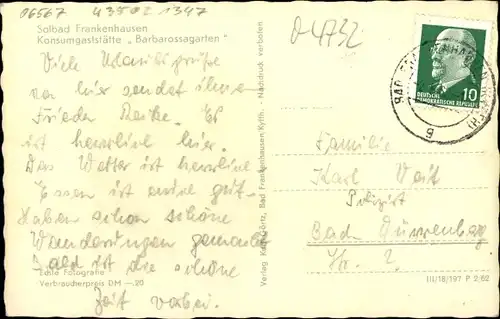 06567 43502 1347
D-4732
Solbad Frankenhausen
Konsumgaststätte „Barbarossagarten"
Viele Urlaubsgrüße
von hier sendet
Frieda. Es
ist herrlich hier.
Das Wetter ist herrlich
Essen ist gut.
Haben schon schöne
Wanderungen gemacht
Bald ist die schöne
Zeit vorbei.
Echte Fotografie
Verbraucherpreis DM —.20
Verlag Kurt Görtz, Bad Frankenhausen/Kyffh. - Nachdruck verboten
10
DEUTSCHE
DEMOKRATISCHE REPUBLIK
BAD
g
Familie
Karl Voit
Polizist
Bad Dürrenberg
III/18/197 P 2/62